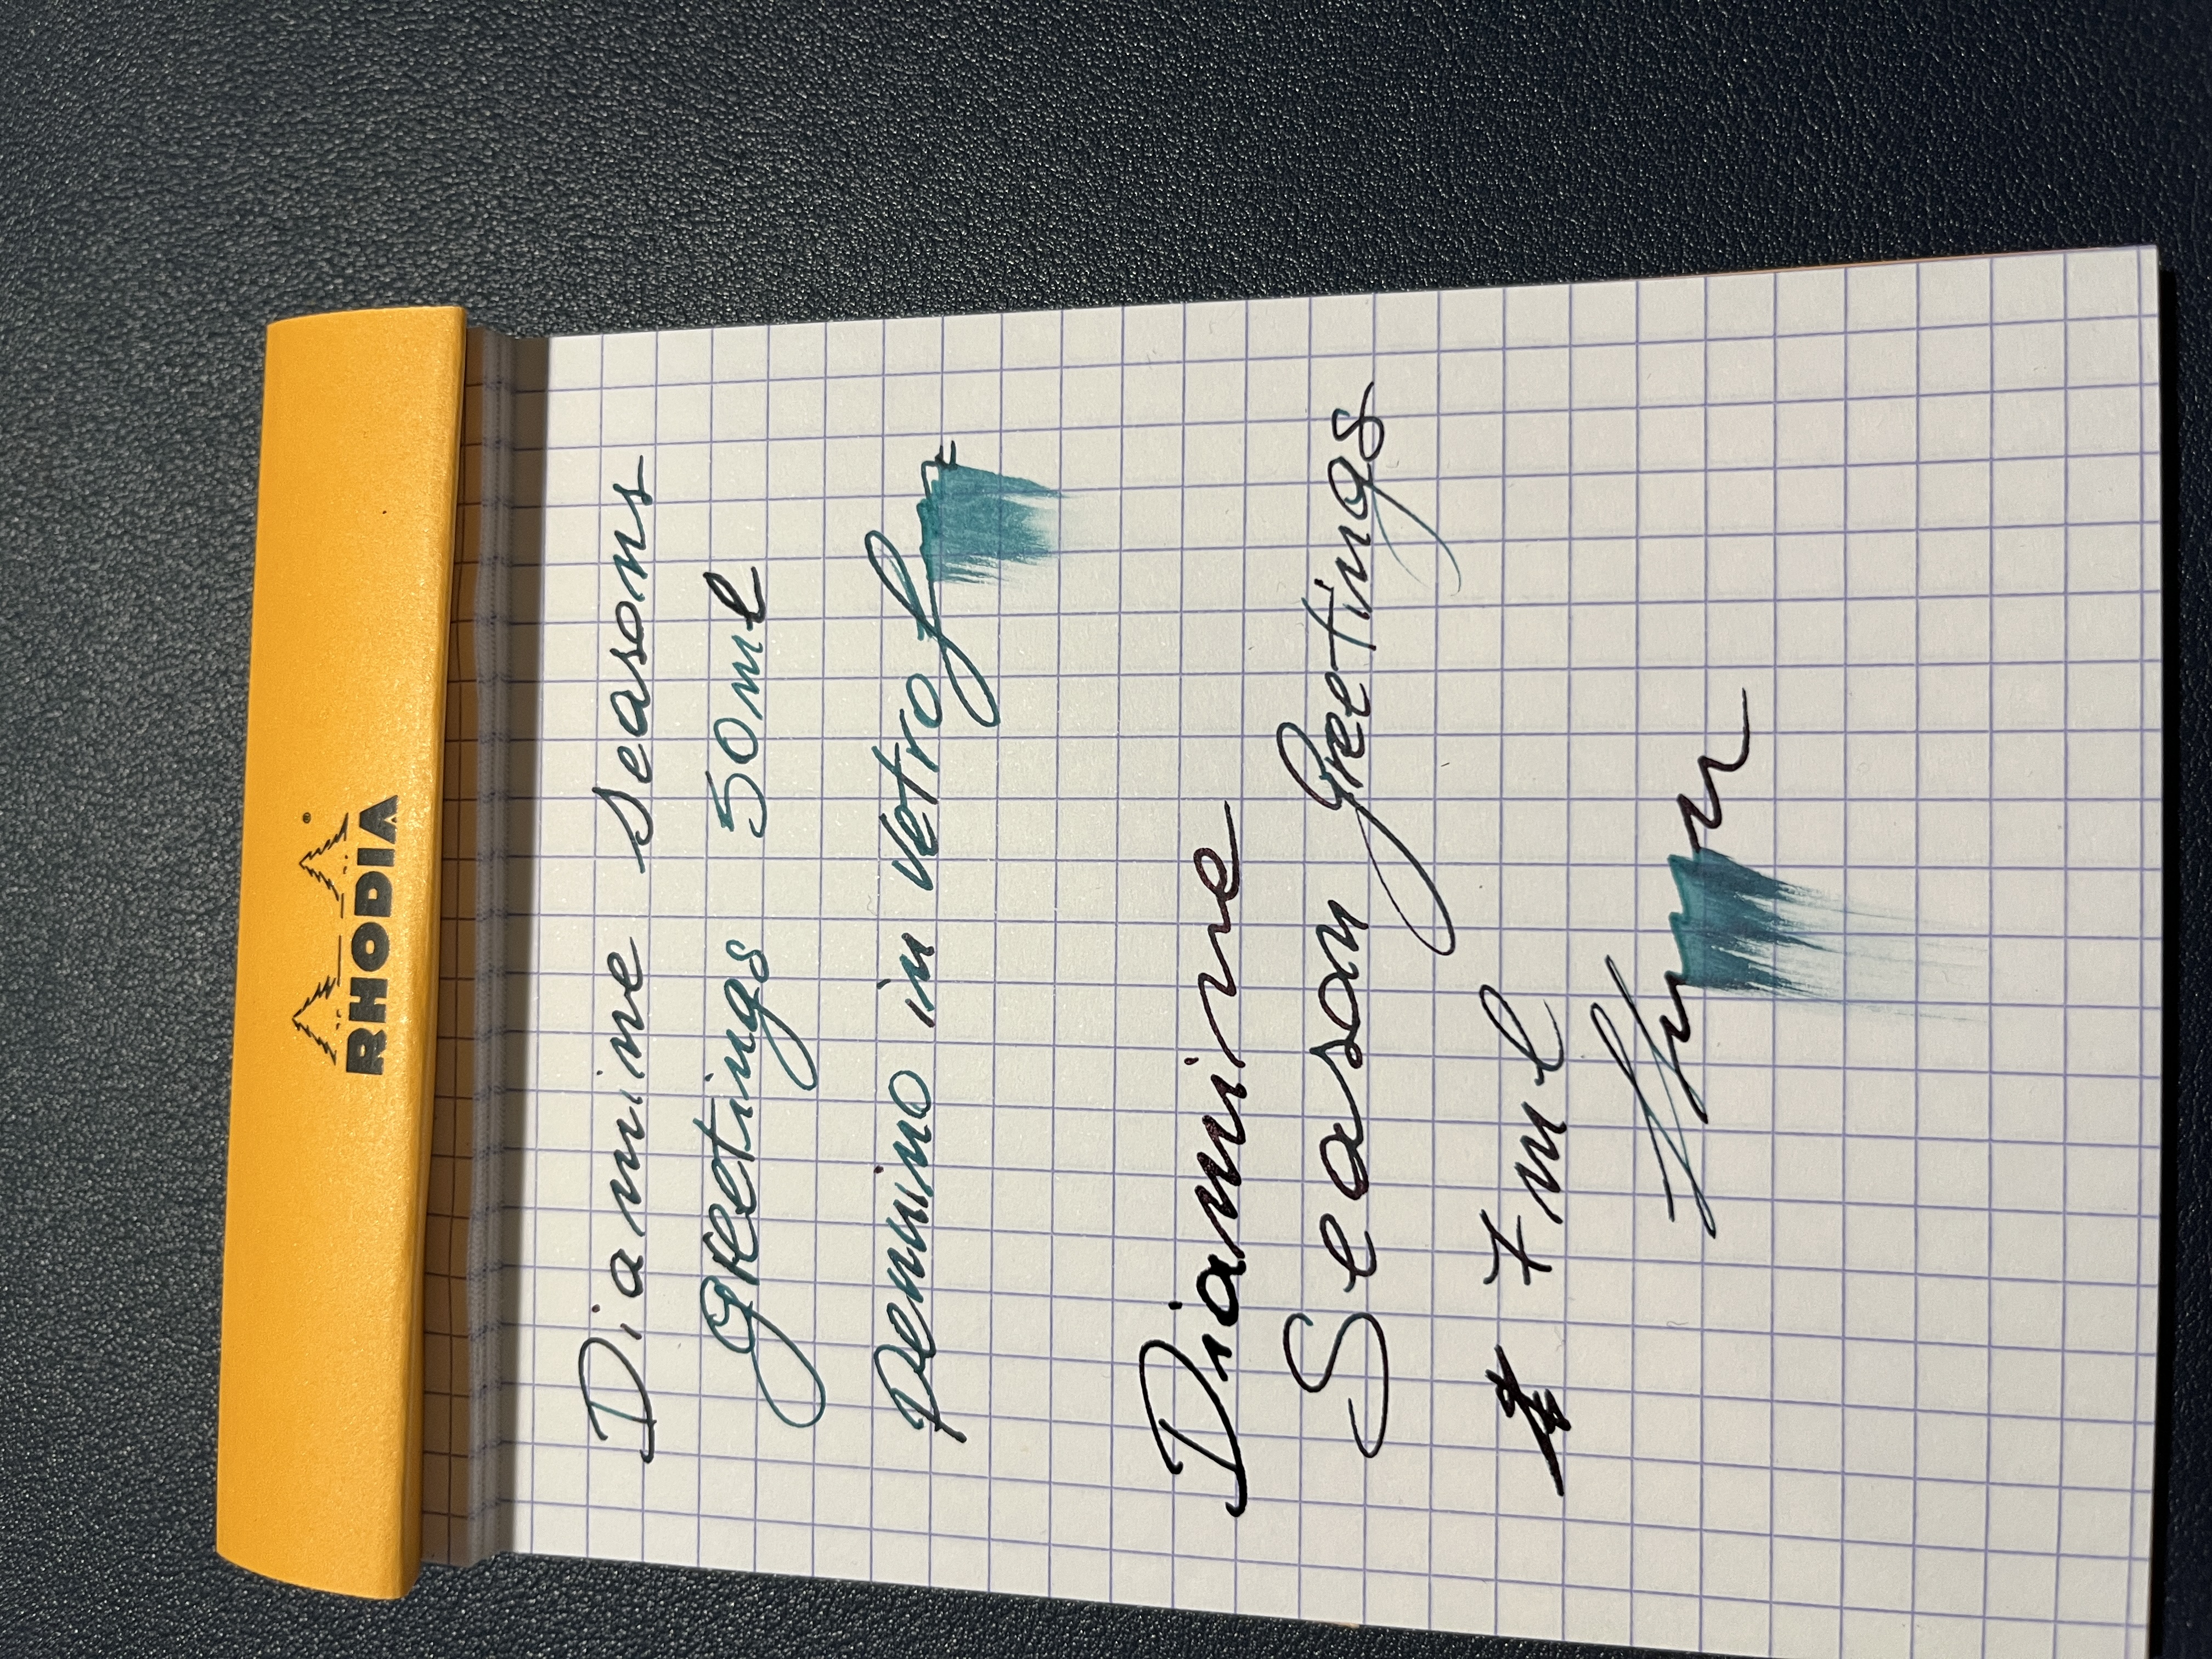 RHODIA
Diamine seasons
greetings 50ml
pennino in vetro
Diamine
Season Greetings
7 ml